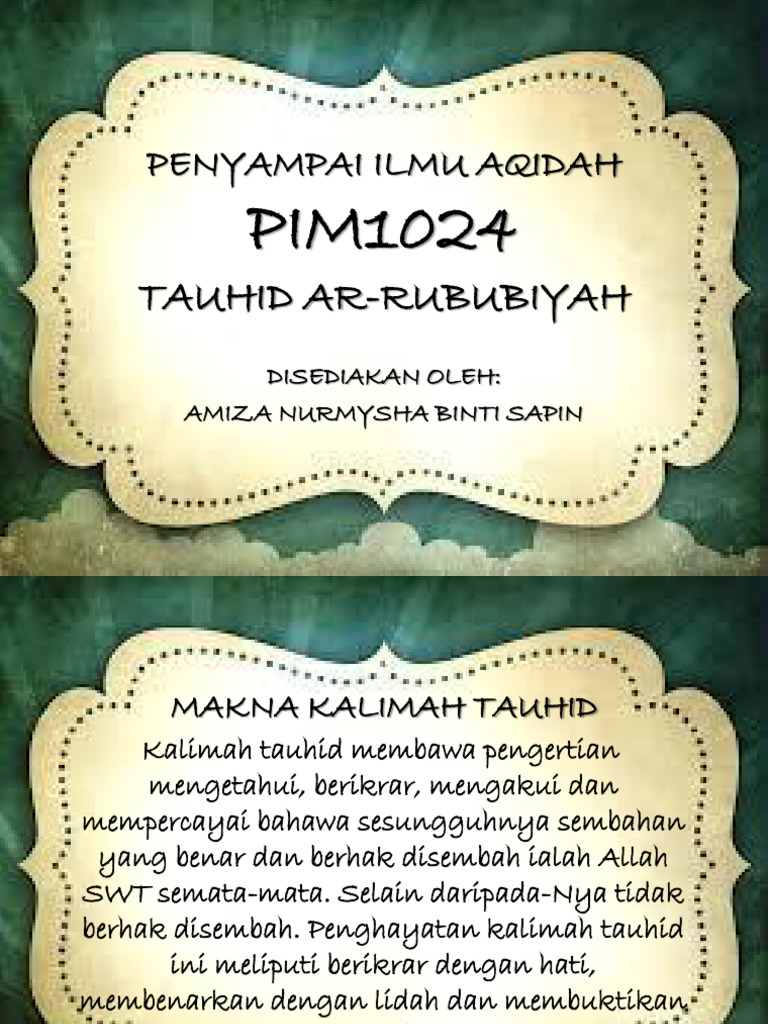 PENYAMPAI ILMU AQIDAH
PIM1024
TAUHID AR-RUBUBIYAH
DISEDIAKAN OLEH:
AMIZA NURMYSHA BINTI SAPIN
MAKNA KALIMAH TAUHID
Kalimah tauhid membawa pengertian
mengetahui, berikrar, mengakui dan
mempercayai bahawa sesungguhnya sembahan
yang benar dan berhak disembah ialah Allah
SWT semata-mata. Selain daripada-Nya tidak
berhak disembah. Penghayatan kalimah tauhid
ini meliputi berikrar dengan hati,
membenarkan dengan lidah dan membuktikan